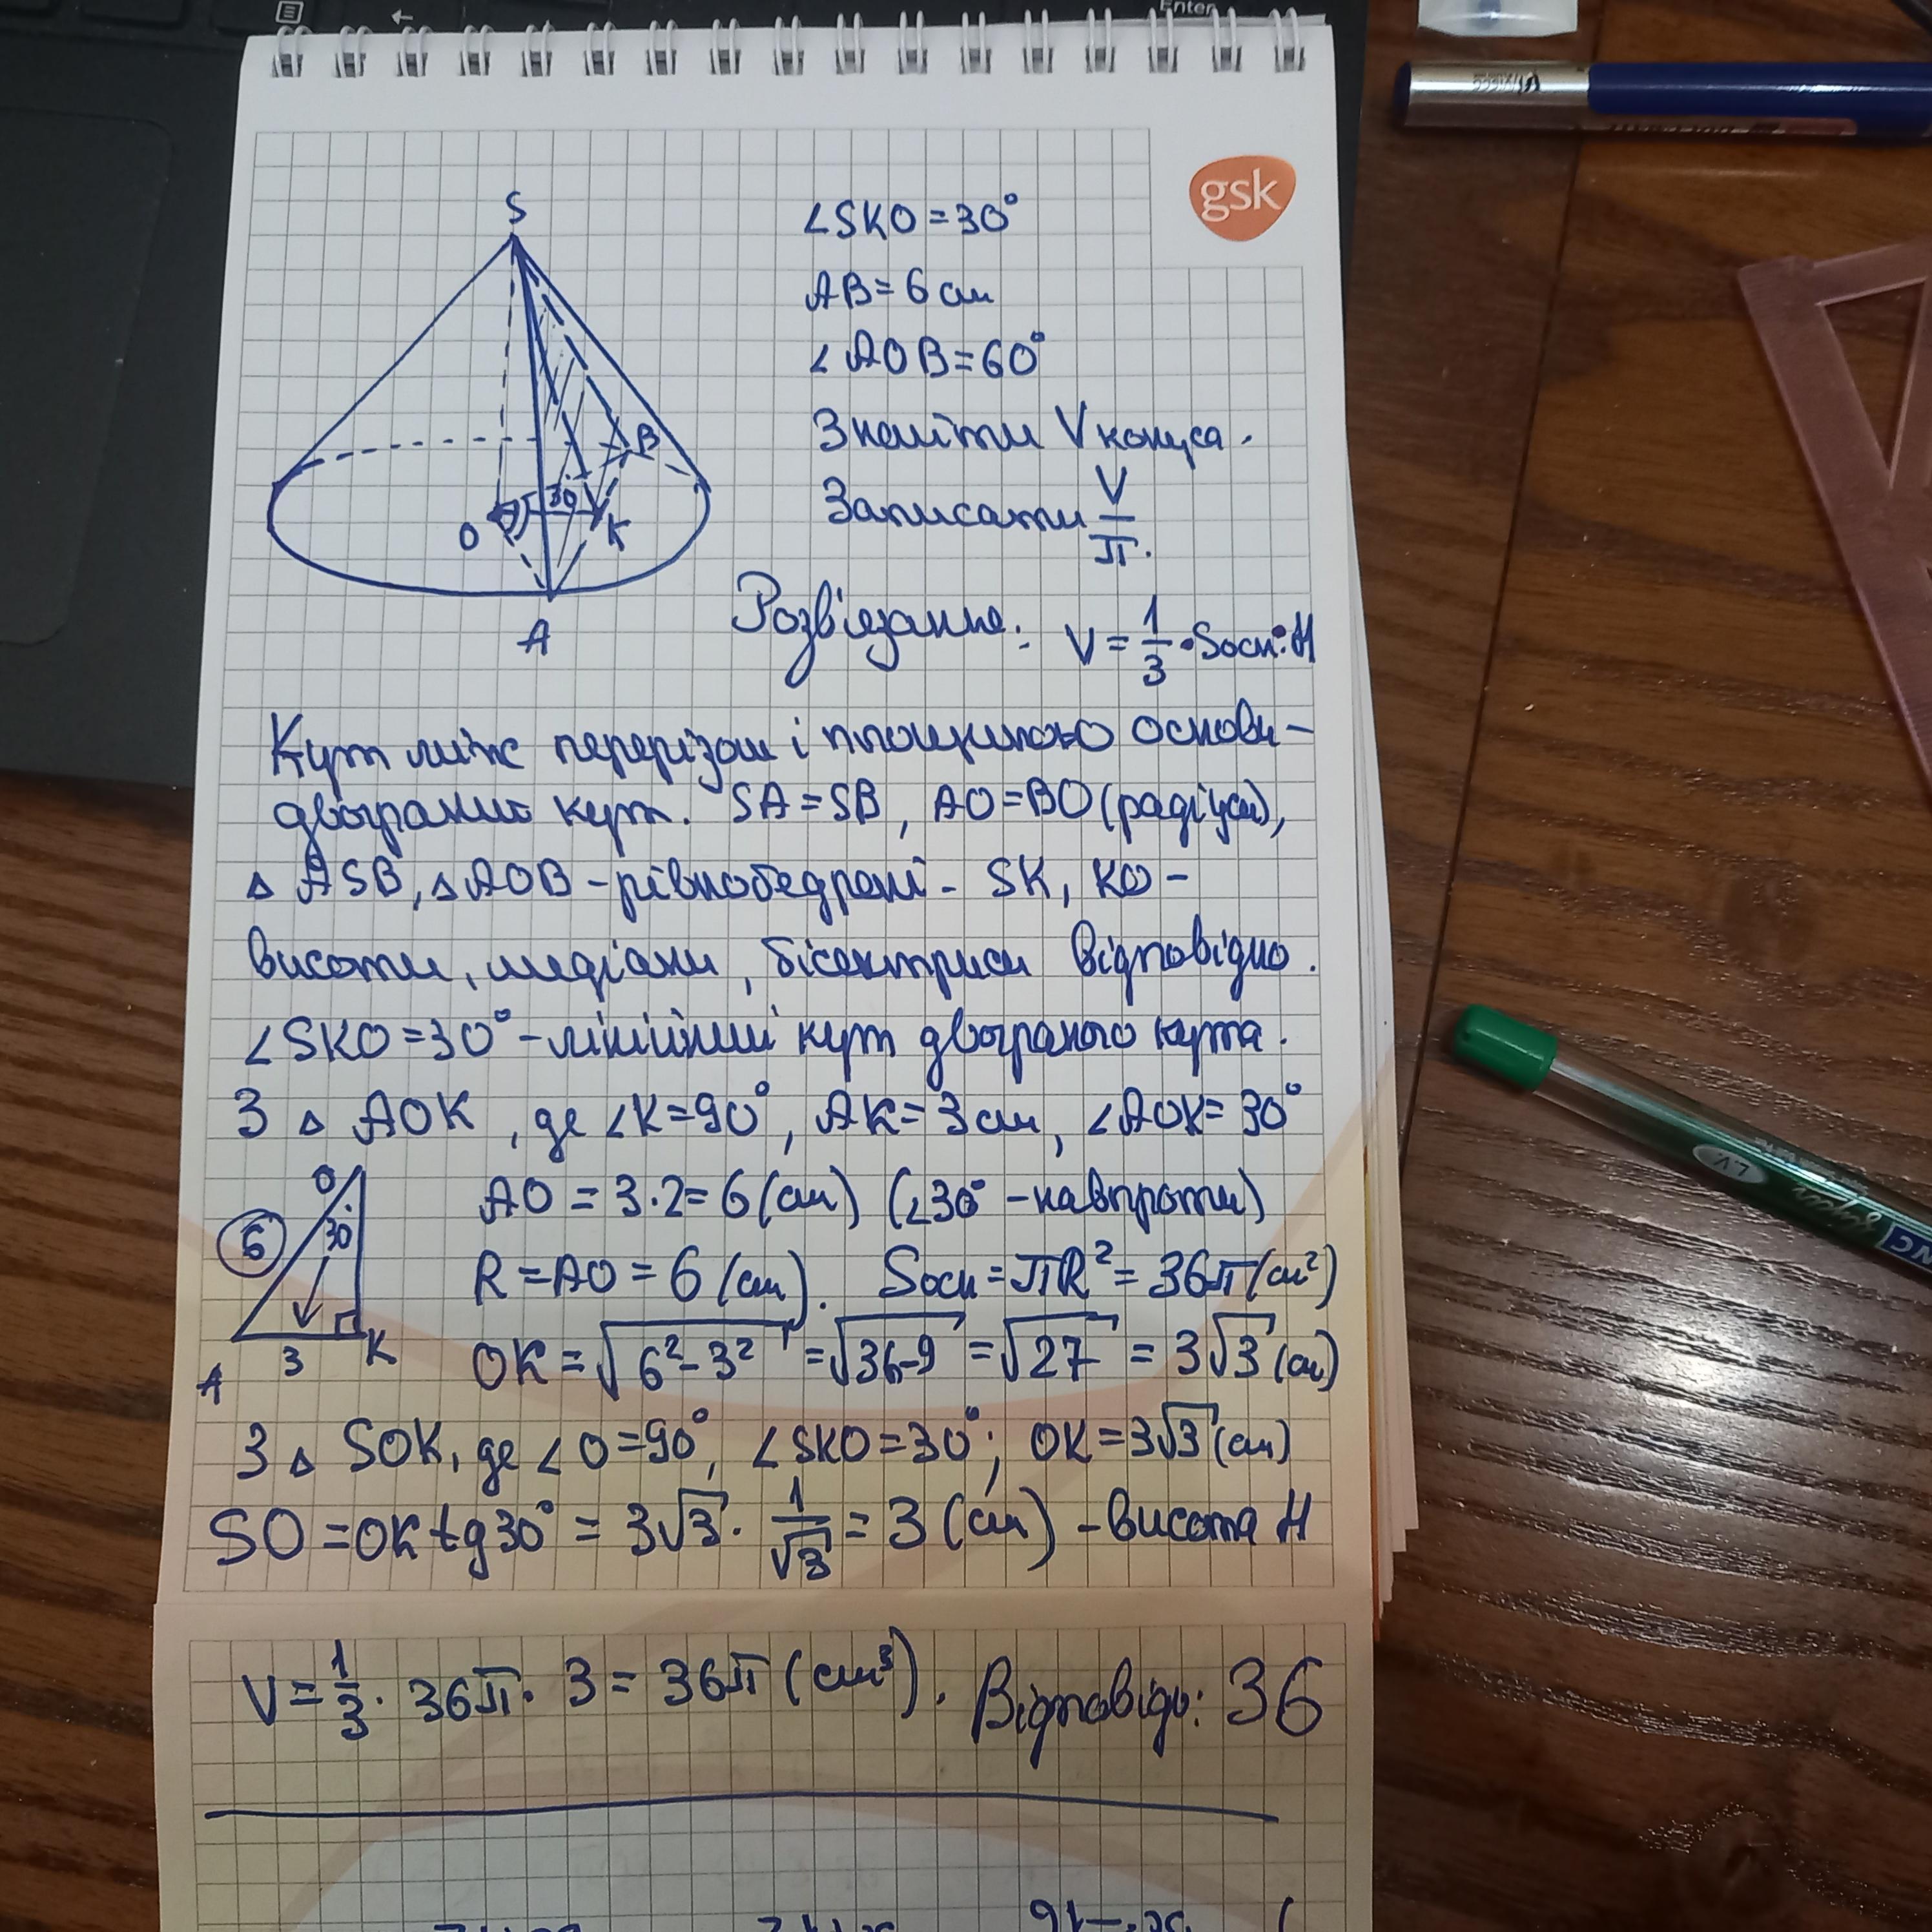 Enter
gsk
S
∠SKO=30°
AB=6 см
∠AOB=60°
Знайти Vконуса.
Записати V/π.
B
30
O
K
A
Розв'язання: V=1/3·Sосн·H
Кут між перерізом і площиною основи –
двогранний кут. SA=SB, AO=BO (радіуси),
△ASB, △AOB – рівнобедрені – SK, KO –
висоти, медіани, бісектриси відповідно.
∠SKO=30° – лінійний кут двогранного кута.
З △ AOK, де ∠K=90°, AK=3 см, ∠AOK=30°
O
6
30
A
3
K
AO = 3·2=6 (см) (∠30° – навпроти)
R=AO=6 (см). Sосн=πR²=36π (см²)
OK=√(6²-3²)=√(36-9)=√27=3√3 (см)
З △ SOK, де ∠O=90°, ∠SKO=30°; OK=3√3 (см)
SO=OK tg30°=3√3·1/√3=3 (см) – висота H
V=1/3·36π·3=36π (см³). Відповідь: 36